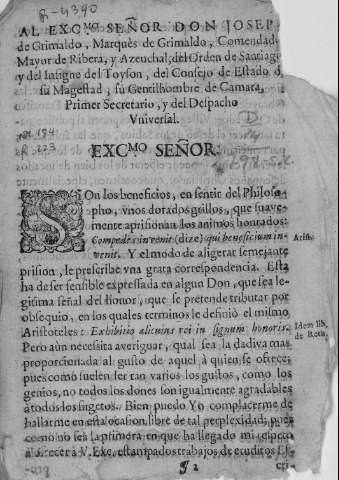 R-4390
AL EXC.MO SEÑOR DON JOSEP
de Grimaldo, Marquès de Grimaldo, Comendad
Mayor de Ribera, y Azeuchal, del Orden de Santiag
y del Insigne del Toyson, del Consejo de Estado d
su Magestad, su Gentilhombre de Camara,
Primer Secretario, y del Despacho
Vniversal.
EXC.MO SEÑOR.
SOn los beneficios, en sentir del Philoso-
pho, vnos dorados grillos, que suave-
mente aprisionan los animos honrados:
Compedes invenit (dize) qui beneficium in-
venit. Y el modo de aligerar semejante
Arist.
prision, le prescribe vna grata correspondencia. Esta
ha de ser sensible expressada en algun Don, que sea le-
gisima señal del Honor, que se pretende tributar por
obsequio, en los quales terminos le definiò el mismo
Aristoteles: Exhibitio alicuius rei in signum honoris.
Idem lib.
de Reth.
Pero aùn necesita averiguar, qual sea la dadiva mas
proporcionada al gusto de aquel à quien se ofrece;
pues como suelen ser tan varios los gustos, como los
genios, no todos los dones son igualmente agradables
à todos los sugetos. Bien puedo Yo complacerme de
hallarme en esta ocasion libre de tal perplexidad, pues
como no sea la primera en que ha llegado mi respeto
à ofrecer à V. Exc. estampados trabajos de eruditos
¶ 2
cri-